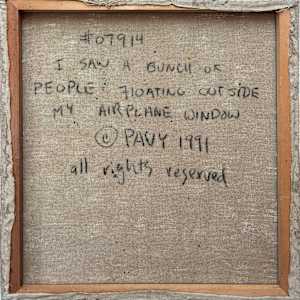 #07914
I SAW A BUNCH OF
PEOPLE FLOATING OUTSIDE
MY AIRPLANE WINDOW
© PAVY 1991
all rights reserved